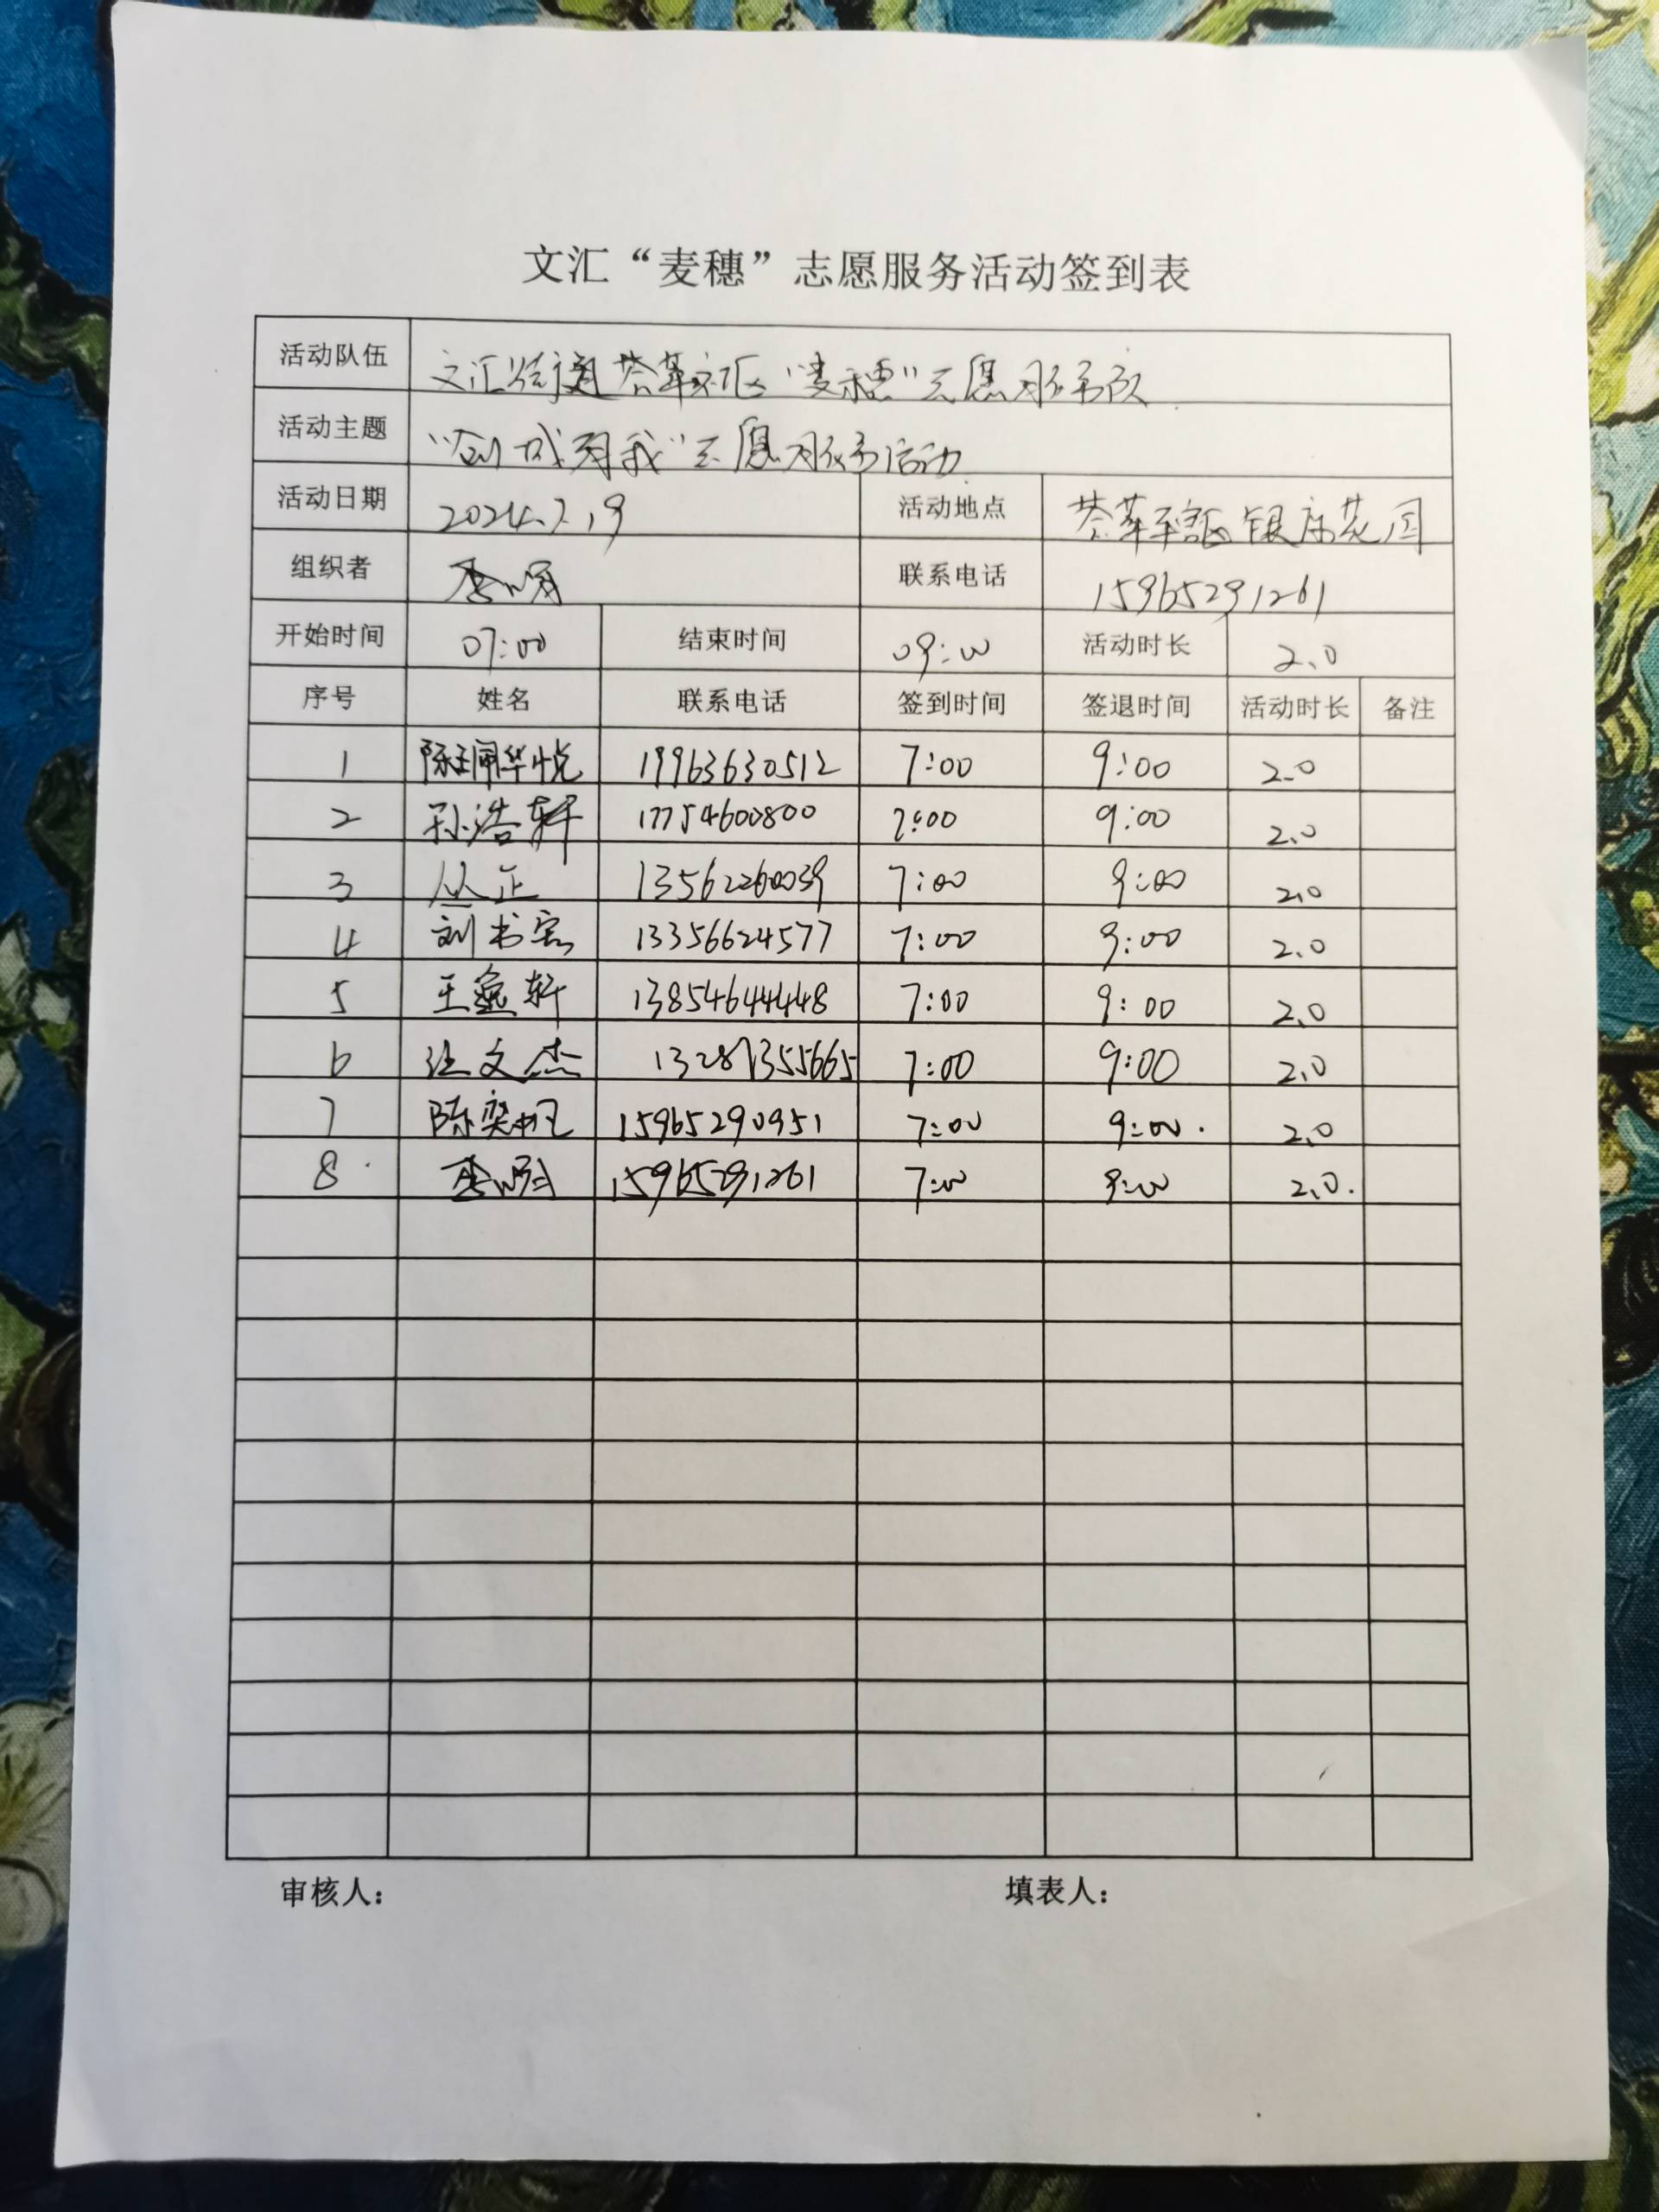 文汇“麦穗”志愿服务活动签到表
活动队伍 文汇街道荟萃社区“麦穗”志愿服务队
活动主题 “创城有我”志愿服务活动
活动日期 2024.7.19 活动地点 荟萃社区银座花园
组织者 联系电话 15965291261
开始时间 07:00 结束时间 09:00 活动时长 2.0
序号 姓名 联系电话 签到时间 签退时间 活动时长 备注
1 19963630512 7:00 9:00 2.0
2 孙浩轩 17754600800 7:00 9:00 2.0
3 丛正 13562260039 7:00 9:00 2.0
4 刘书宏 13356624577 7:00 9:00 2.0
5 王逸轩 13854644448 7:00 9:00 2.0
6 汪文杰 13287355665 7:00 9:00 2.0
7 陈奕帆 15965290951 7:00 9:00. 2.0
8 15965291261 7:00 9:00 2.0.
审核人： 填表人：